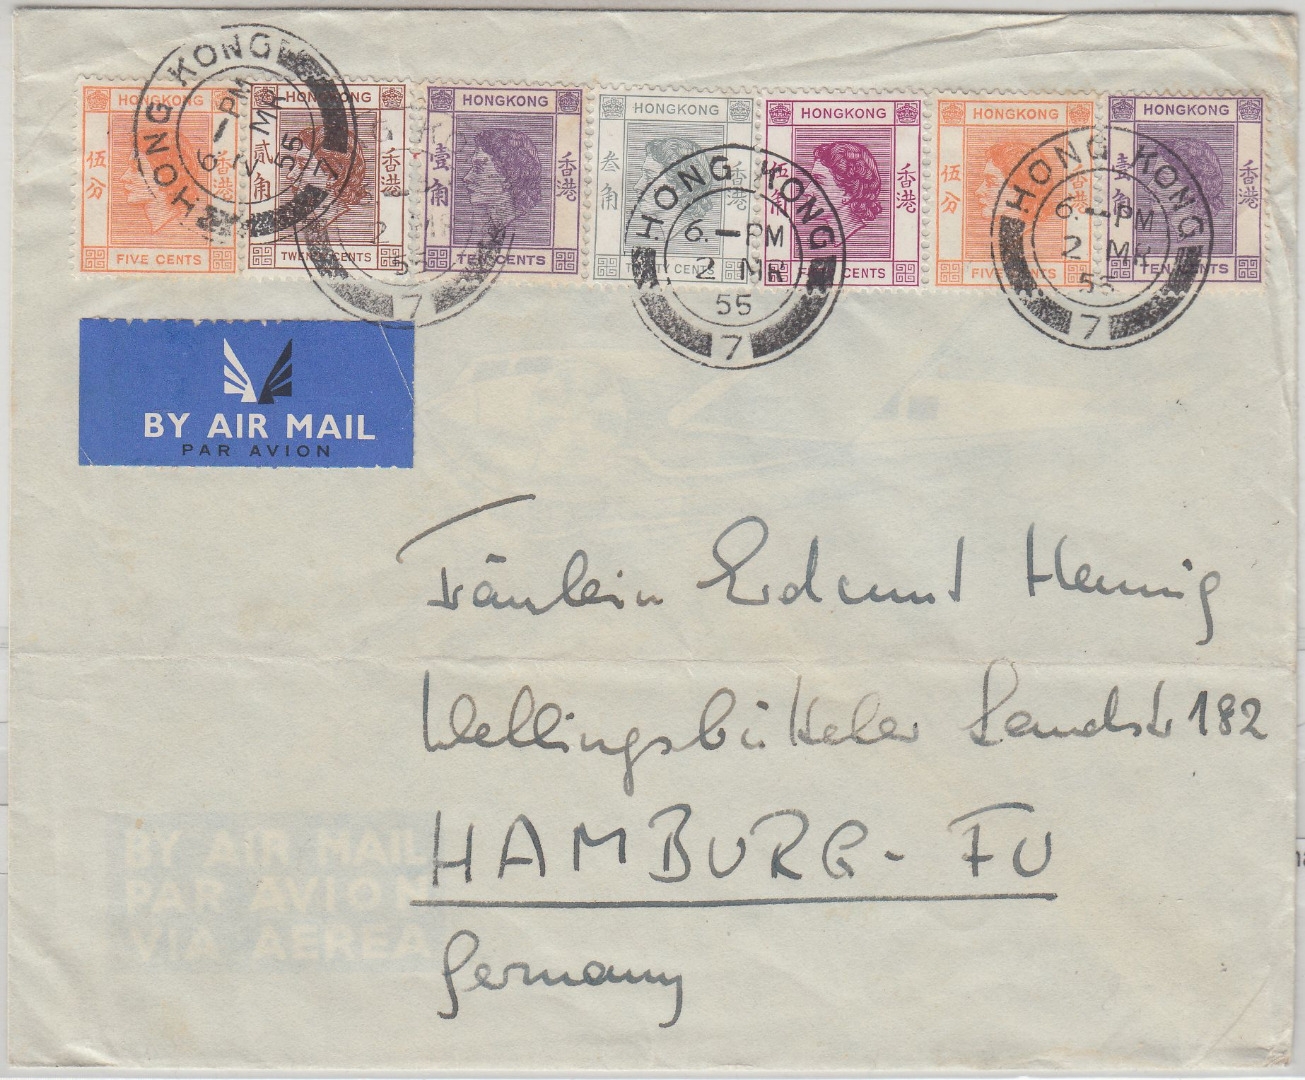 HONGKONG
伍分
香港
FIVE CENTS
HONGKONG
貳角
香港
TWENTY CENTS
HONGKONG
壹角
香港
TEN CENTS
HONGKONG
叁角
香港
THIRTY CENTS
HONGKONG
伍角
香港
FIFTY CENTS
HONGKONG
伍分
香港
FIVE CENTS
HONGKONG
壹角
香港
TEN CENTS
HONG KONG
6.—PM
2 MR
55
7
2 MR
55
7
HONG KONG
6.—PM
2 MR
55
7
HONG KONG
6.—PM
2 MR
55
7
BY AIR MAIL
PAR AVION
Fräulein Erdmut Hennig
Wellingsbütteler Landstr 182
HAMBURG - FU
Germany
BY AIR MAIL
PAR AVION
VIA AEREA